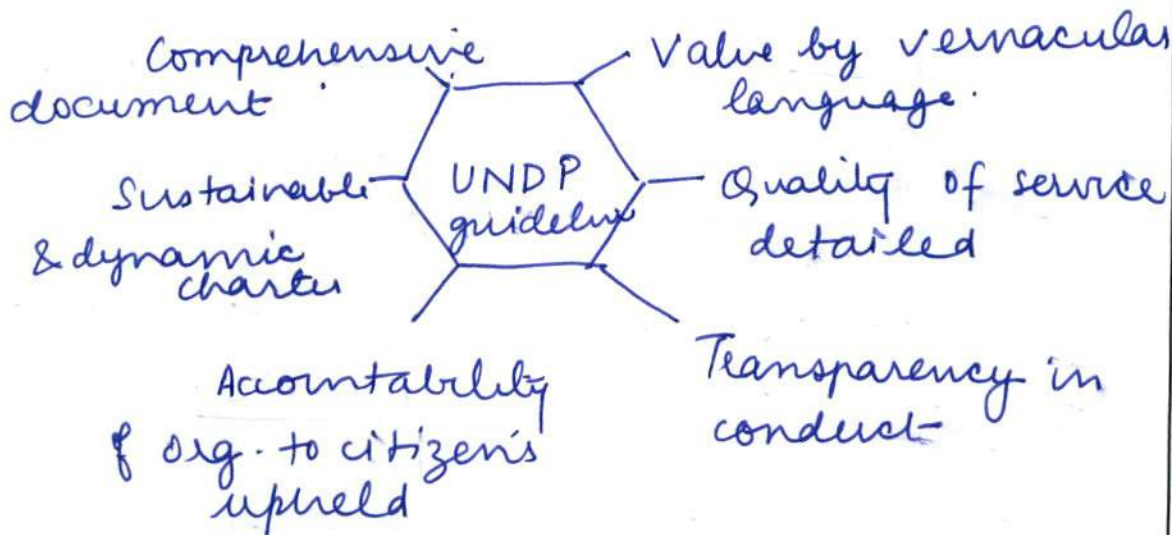 Comprehensive
document.
Value by vernacular
language.
Sustainable
& dynamic
charter
UNDP
guideline
Quality of service
detailed
Accountability
of org. to citizen's
upheld
Transparency in
conduct